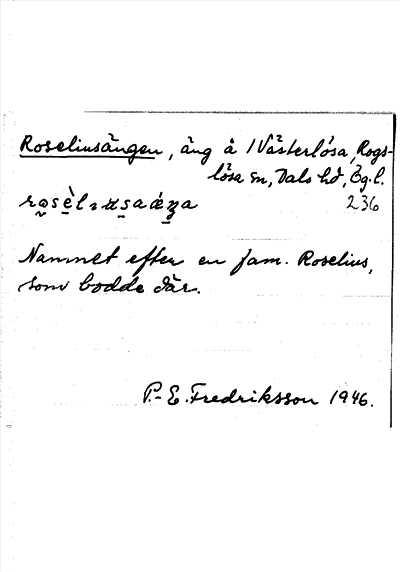 Roseliusängen, äng å Västerlösa, Rogs-
lösa sn, Dals hd, Ög. l.
236
Namnet efter en fam. Roselius,
som bodde där.
P.-E. Fredriksson 1946.